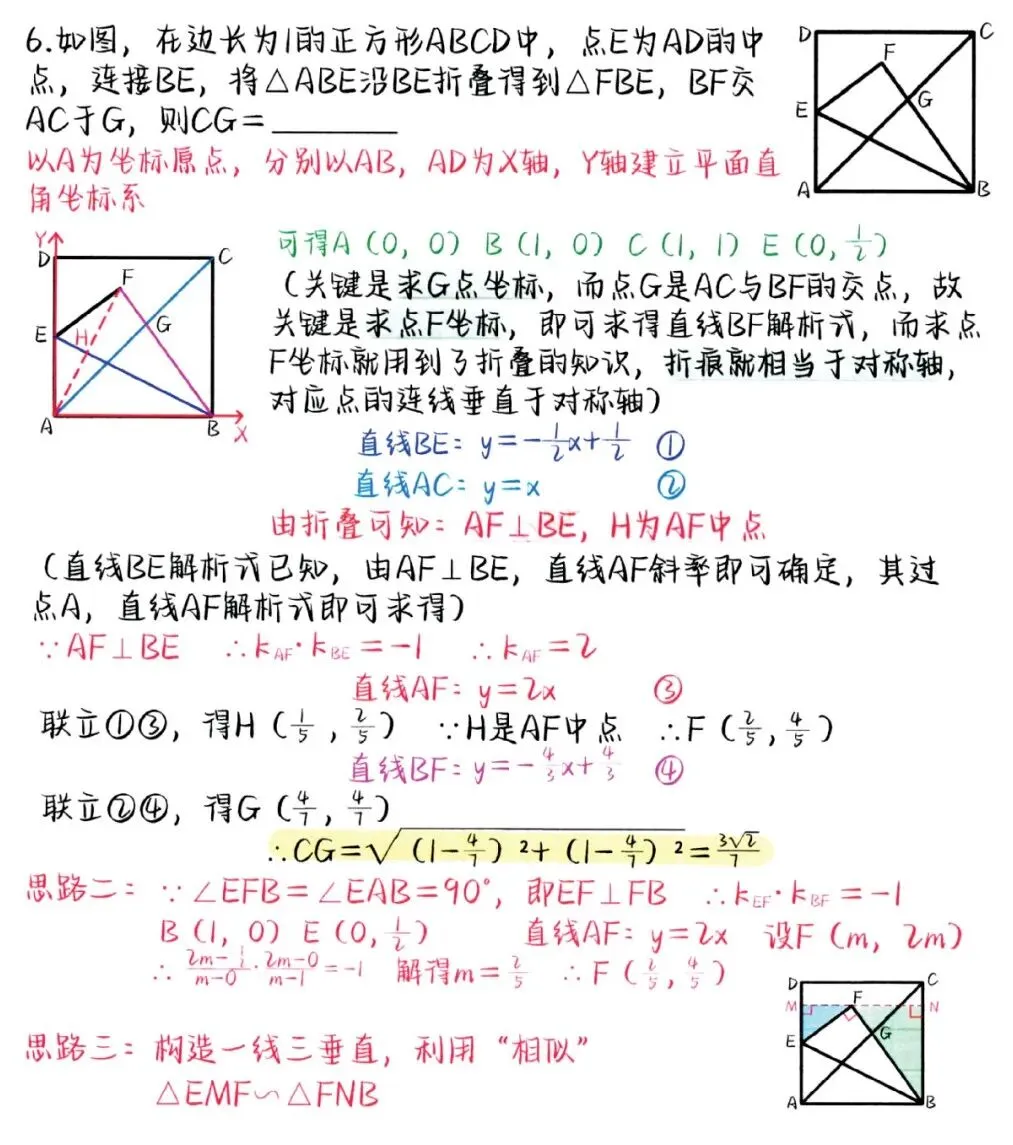 6.如图，在边长为1的正方形ABCD中，点E为AD的中
点，连接BE，将△ABE沿BE折叠得到△FBE，BF交
AC于G，则CG=________
D
C
F
E
G
A
B
以A为坐标原点，分别以AB，AD为X轴，Y轴建立平面直
角坐标系
Y
D
C
F
E
H
G
A
B
X
可得A（0，0）B（1，0）C（1，1）E（0，1/2）
（关键是求G点坐标，而点G是AC与BF的交点，故
关键是求点F坐标，即可求得直线BF解析式，而求点
F坐标就用到了折叠的知识，折痕就相当于对称轴，
对应点的连线垂直于对称轴）
直线BE：y=-1/2x+1/2 ①
直线AC：y=x ②
由折叠可知：AF⊥BE，H为AF中点
（直线BE解析式已知，由AF⊥BE，直线AF斜率即可确定，其过
点A，直线AF解析式即可求得）
∵AF⊥BE ∴k_AF·k_BE=-1 ∴k_AF=2
直线AF：y=2x ③
联立①③，得H（1/5，2/5） ∵H是AF中点 ∴F（2/5，4/5）
直线BF：y=-4/3x+4/3 ④
联立②④，得G（4/7，4/7）
∴CG=√（1-4/7）²+（1-4/7）²=3√2/7
思路二：∵∠EFB=∠EAB=90°，即EF⊥FB ∴k_EF·k_BF=-1
B（1，0）E（0，1/2） 直线AF：y=2x 设F（m，2m）
∴ (2m-1/2)/(m-0)·(2m-0)/(m-1)=-1 解得m=2/5 ∴F（2/5，4/5）
思路三：构造一线三垂直，利用“相似”
△EMF∽△FNB
D
C
M
F
N
E
G
A
B